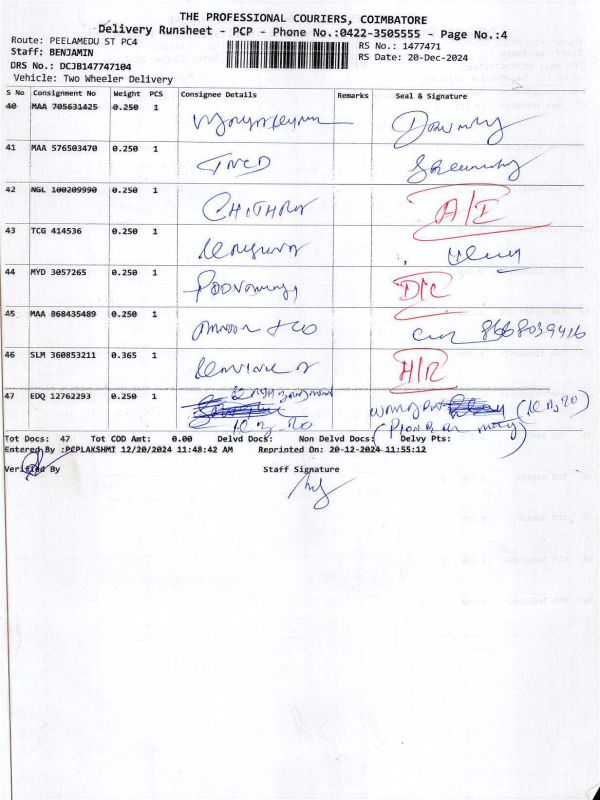 THE PROFESSIONAL COURIERS, COIMBATORE
Delivery Runsheet - PCP - Phone No.:0422-3505555 - Page No.:4
Route: PEELAMEDU ST PC4 RS No.: 1477471
Staff: BENJAMIN RS Date: 20-Dec-2024
DRS No.: DCJB147747104
Vehicle: Two Wheeler Delivery
S No Consignment No Weight PCS Consignee Details Remarks Seal & Signature
40 MAA 705631425 0.250 1
41 MAA 576503470 0.250 1
42 NGL 100209990 0.250 1 CHITHRA A/I
43 TCG 414536 0.250 1
44 MYD 3057265 0.250 1 D/C
45 MAA 868435489 0.250 1 8668039416
46 SLM 360853211 0.365 1 H/R
47 EDQ 12762293 0.250 1
Tot Docs: 47 Tot COD Amt: 0.00 Delvd Docs: Non Delvd Docs: Delvy Pts:
Entered By :PCPLAKSHMI 12/20/2024 11:48:42 AM Reprinted On: 20-12-2024 11:55:12
Verified By Staff Signature